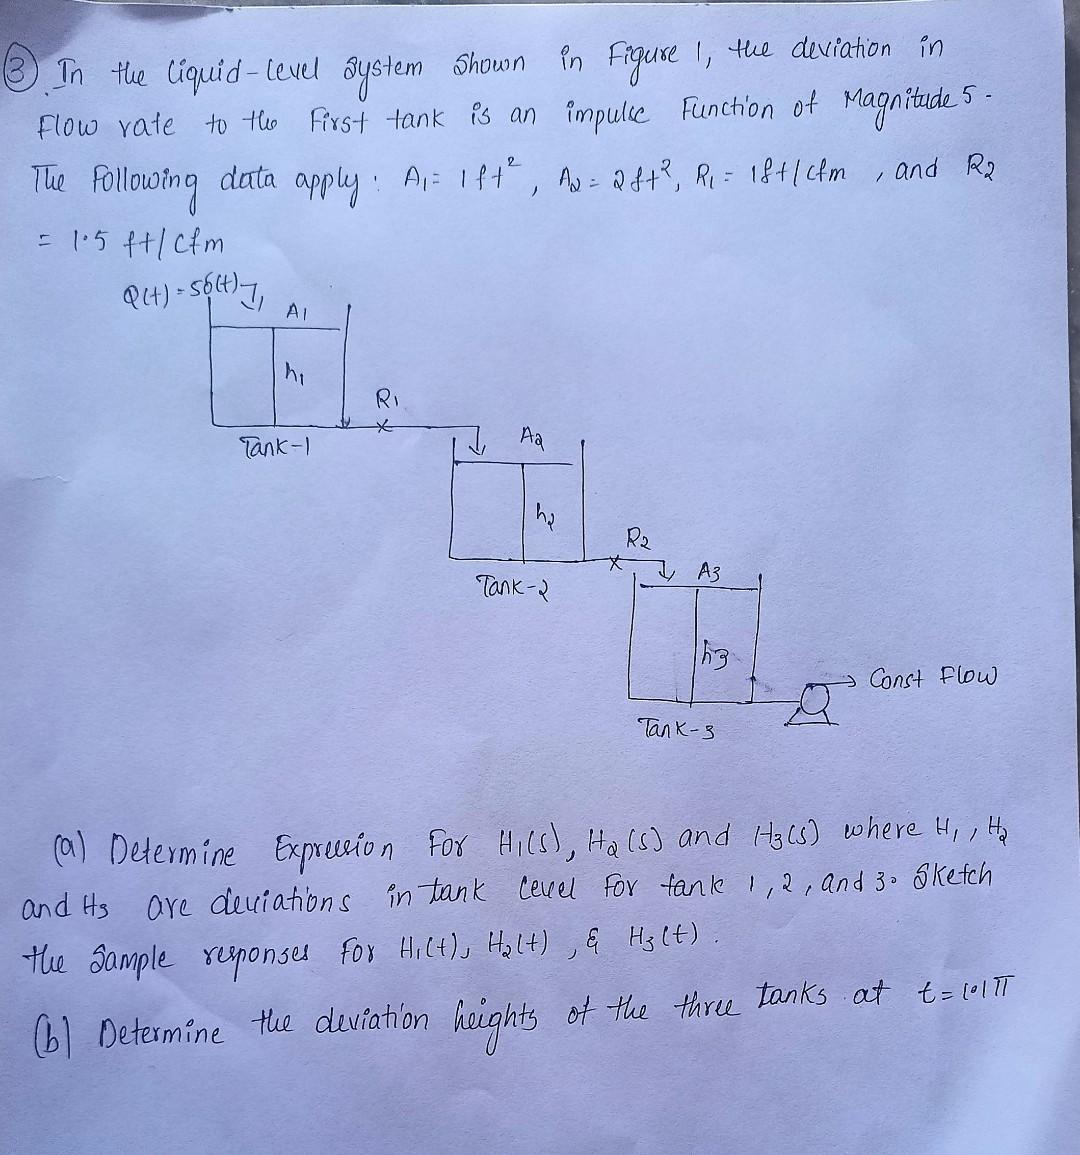 ③ In the liquid-level system shown in Figure 1, the deviation in
Flow rate to the First tank is an impulse Function of Magnitude 5.
The Following data apply: A₁ = 1ft², A₂ = 2ft², R₁ = 1ft/cfm, and R₂
= 1.5 ft/cfm
Q(t) = 5δ(t)
A1
h₁
R₁
Tank-1
A₂
h₂
R₂
Tank-2
A3
h3
Const Flow
Tank-3
(a) Determine Expression For H₁(s), H₂(s) and H₃(s) where H₁, H₂
and H₃ are deviations in tank level For tank 1, 2, and 3. Sketch
the Sample responses For H₁(t), H₂(t), & H₃(t).
(b) Determine the deviation heights of the three tanks at t=1.1π